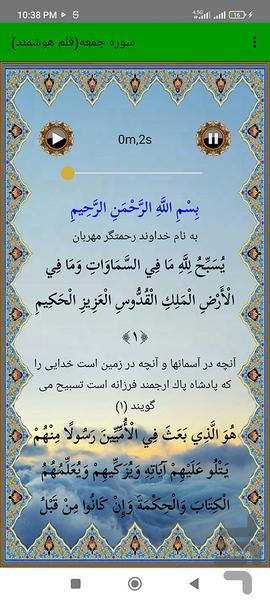 10:38 PM
16
سوره جمعه(قلم هوشمند)
0m,2s
بِسْمِ اللَّهِ الرَّحْمَنِ الرَّحِيمِ
به نام خداوند رحمتگر مهربان
يُسَبِّحُ لِلَّهِ مَا فِي السَّمَاوَاتِ وَمَا فِي
الْأَرْضِ الْمَلِكِ الْقُدُّوسِ الْعَزِيزِ الْحَكِيمِ
﴿۱﴾
آنچه در آسمانها و آنچه در زمين است خدايى را
كه پادشاه پاك ارجمند فرزانه است تسبيح مى
گويند (۱)
هُوَ الَّذِي بَعَثَ فِي الْأُمِّيِّينَ رَسُولًا مِنْهُمْ
يَتْلُو عَلَيْهِمْ آيَاتِهِ وَيُزَكِّيهِمْ وَيُعَلِّمُهُمُ
الْكِتَابَ وَالْحِكْمَةَ وَإِنْ كَانُوا مِنْ قَبْلُ